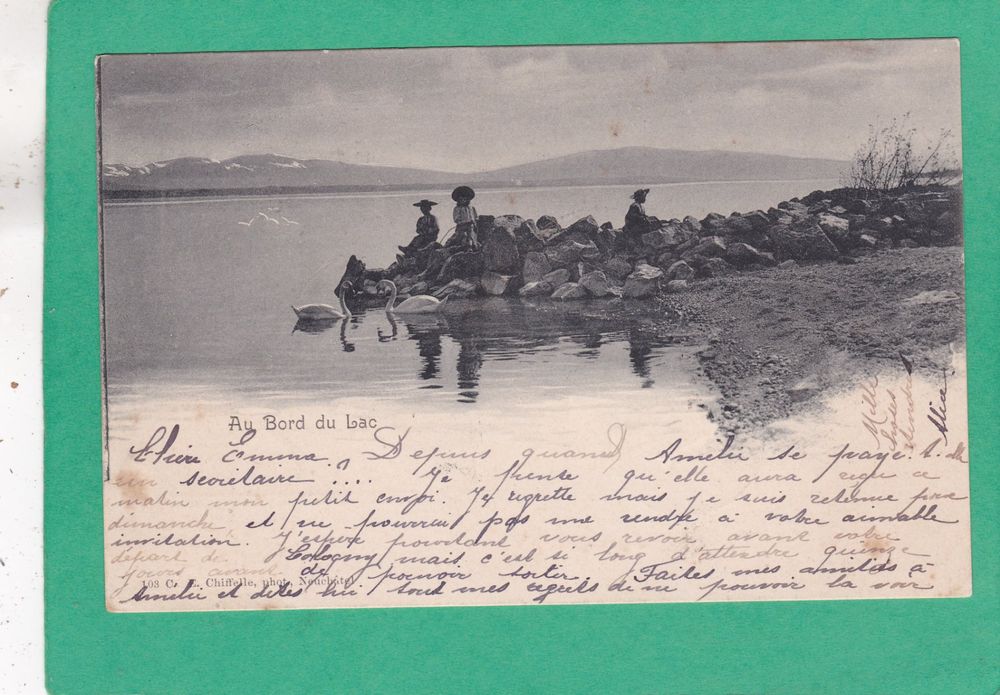 Au Bord du Lac
Chère Emma. Depuis quand Amélie se paye t-elle
un secrétaire .... Je pense qu'elle aura reçu ce
matin mon petit envoi. Je regrette mais je suis retenue par
dimanche et ne pourrai pas me rendre à votre aimable
invitation. J'espère pourtant vous revoir avant votre
départ de Cologny mais c'est si long d'attendre quinze
jours avant de pouvoir sortir. Faites mes amitiés à
103 C. Chiffelle, phot. Neuchâtel
Amélie et dites lui tout mes regrets de ne pouvoir la voir
Mille
Alice